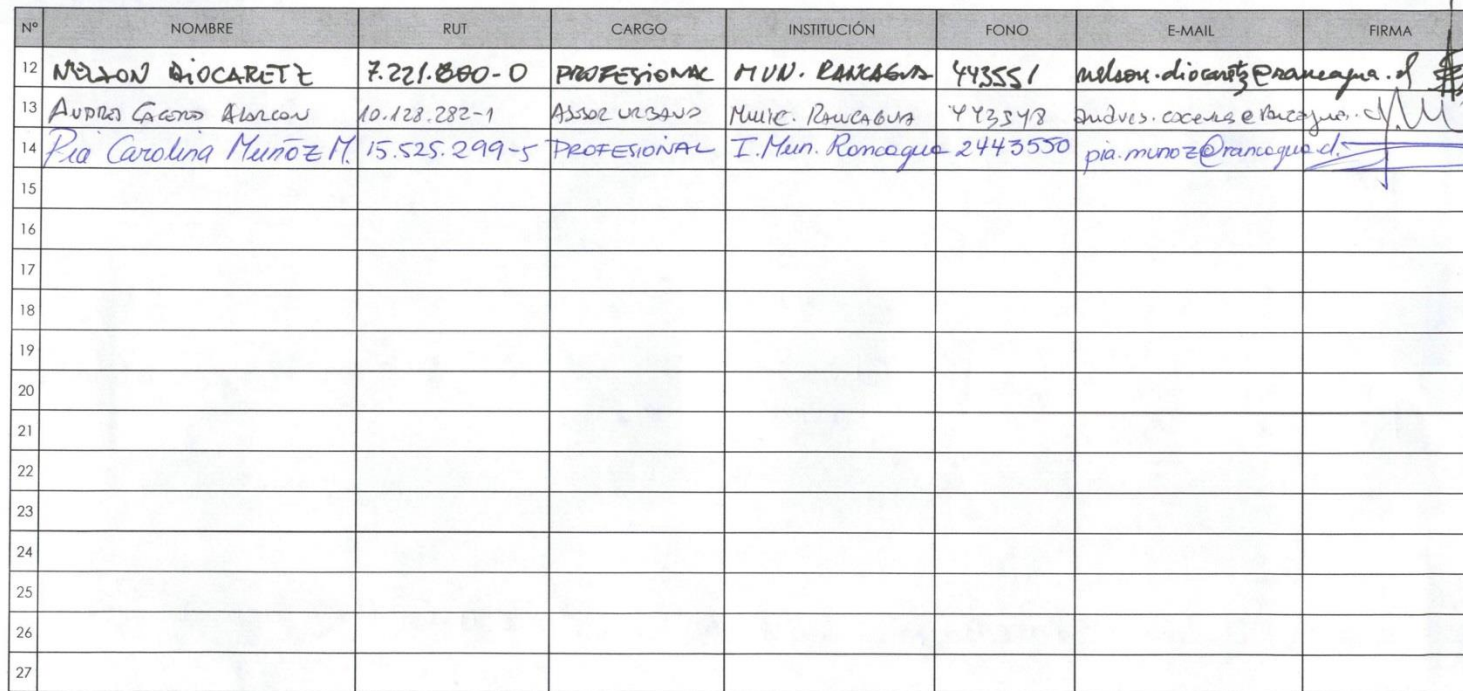 Nº NOMBRE RUT CARGO INSTITUCIÓN FONO E-MAIL FIRMA
12 NELSON DIOCARETZ 7.221.800-0 PROFESIONAL MUN. RANCAGUA 443551 nelson.diocaretz@rancagua.cl
13 ANDRES CACERES ALARCON 10.128.282-1 ASESOR URBANO MUNIC. RANCAGUA 443548 andres.caceres@rancagua.cl
14 Pia Carolina Muñoz M. 15.525.299-5 PROFESIONAL I. Mun. Rancagua 2443550 pia.munoz@rancagua.cl
15
16
17
18
19
20
21
22
23
24
25
26
27